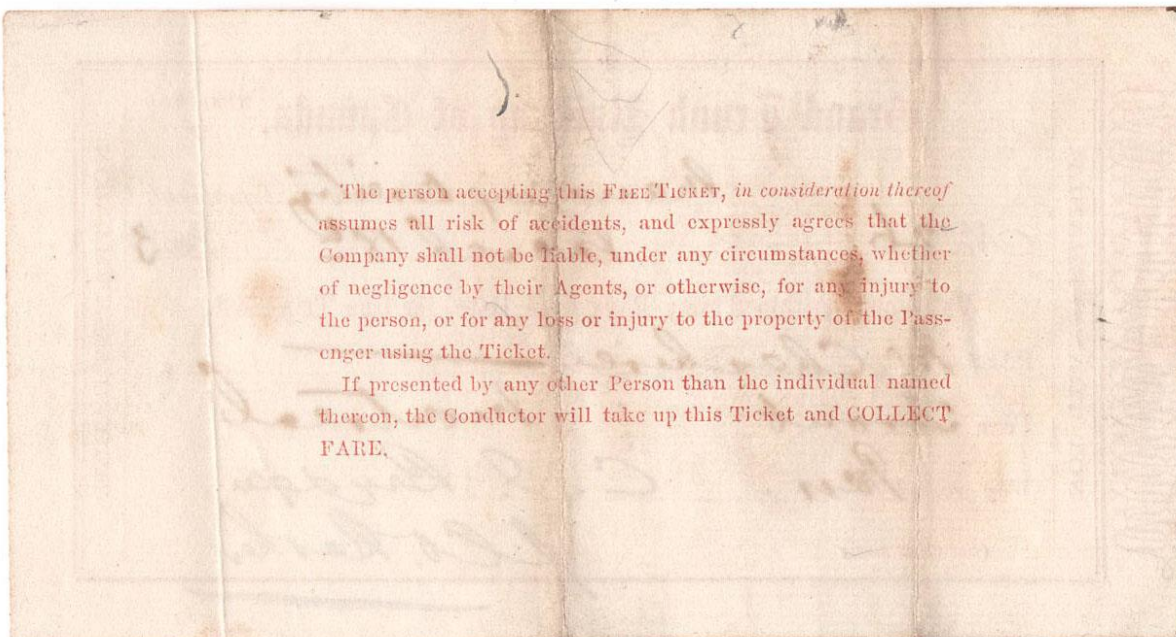 The person accepting this FREE TICKET, in consideration thereof
assumes all risk of accidents, and expressly agrees that the
Company shall not be liable, under any circumstances, whether
of negligence by their Agents, or otherwise, for any injury to
the person, or for any loss or injury to the property of the Pass-
enger using the Ticket.
If presented by any other Person than the individual named
thereon, the Conductor will take up this Ticket and COLLECT
FARE.